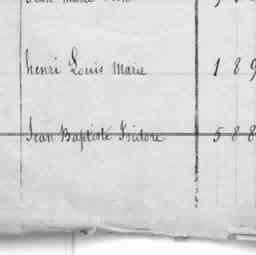 henri Louis Marie 1 8 9
Jean Baptiste Isidore 5 8 8